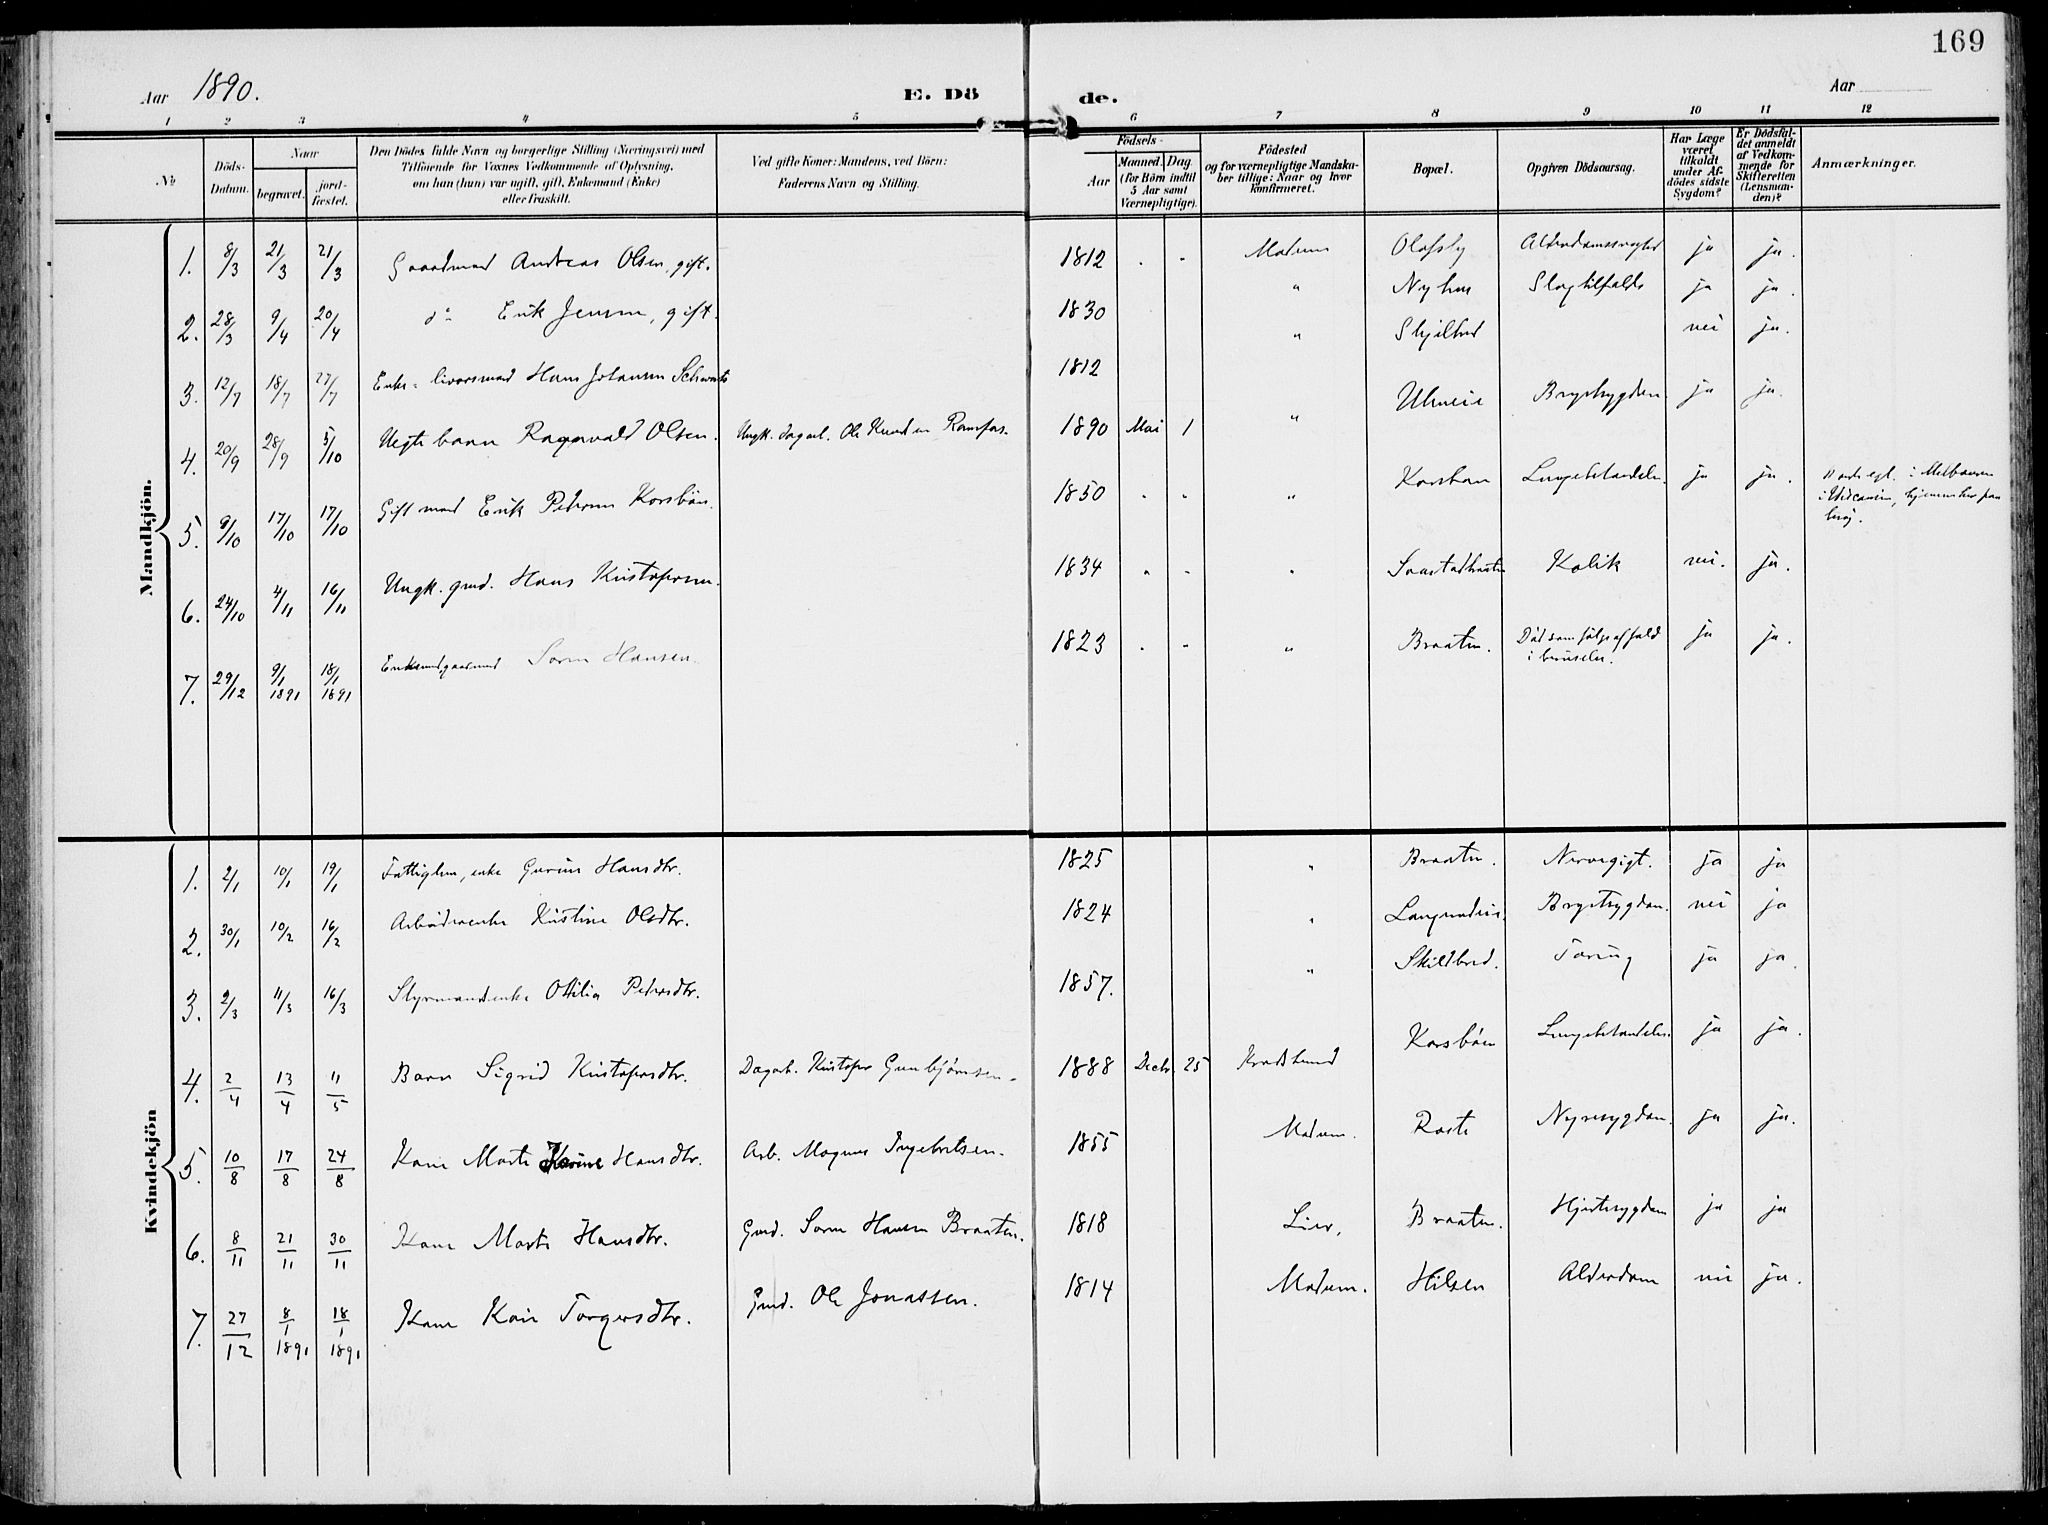 169
Aar 1890. E. Dö de. Aar
1 2 3 4 5 6 7 8 9 10 11 12
No
Döds-
Datum.
Naar
begravet.
jord-
fæstet.
Den Dödes fulde Navn og borgerlige Stilling (Næringsvei) med
Tilföiende for Voxnes Vedkommende af Oplysning,
om han (hun) var ugift, gift, Enkemand (Enke)
eller fraskilt.
Ved gifte Koner: Mandens, ved Börn:
Faderens Navn og Stilling.
Födsels-
Aar
Maaned. Dag.
(for Börn indtil
5 Aar samt
Værnepligtige).
Födested
og for værnepligtige Mandska-
ber tillige: Naar og hvor
konfirmeret.
Bopæl.
Opgiven Dödsaarsag.
Har Læge
været
tilkaldt
under Af-
dödes sidste
Sygdom?
Er Dödsfal-
det anmeldt
af Vedkom-
mende for
Skifteretten
(Lensman-
den)?
Anmærkninger.
Mandkjön.
1. 8/3 21/3 21/3 Gaardmand Andreas Olsen, gift. 1812 Modum Olafsby ja ja.
2. 28/3 9/4 20/4 do Erik Jensen, gift. 1830 " Nyhus Slagtilfælde ja ja.
3. 12/7 18/7 27/7 Hans Johansen 1812 " nei ja.
4. 20/9 28/9 5/10 Uegte barn Ragnvald Olsen. Ungk. dagarb. Ole Knudsen 1890 Mai 1 " Brystsygdom ja ja.
5. 9/10 17/10 17/10 Gift mand Erik Petersen Korsbön. 1850 " Lungebetændelse ja ja.
6. 24/10 4/11 16/11 Ungk. gmd. Hans Kristofersen. 1834 " Kolik nei. ja.
7. 29/12 9/1 1891 18/1 1891 Søren Hansen. 1823 " Braaten. Död som fölge af fald ja ja.
i beruselse.
Kvindekjön
1. 2/1 10/1 19/1 enke Hansdtr. 1825 " Braaten. Nervegigt. ja ja
2. 30/1 10/2 16/2 Arbeiderenke Kristine Olsdtr. 1824 " Brystsygdom. nei ja
3. 2/3 11/3 16/3 Styrmandsenke Ottilia Petersdtr. 1857. " Skildbred. Tæring ja ja.
4. 2/4 13/4 11/5 Barn Sigrid Kristofersdtr. Dagarb. Kristofer Gunbjörnsen. 1888 Decbr. 25 Korsbön Lungebetændelse ja ja.
5. 10/8 17/8 24/8 Kone Marte Karine Hansdtr. Arb. Magnus Ingebretsen. 1855 Modum. Nyresygdom. ja ja.
6. 8/11 21/11 30/11 Kone Marte Hansdtr. Gmd. Søren Hansen Braaten. 1818 Lier, Braaten. Hjertesygdom ja ja
7. 27/12 8/1 1891 18/1 1891 Kone Kari Torgersdtr. Gmd. Ole Jonassen. 1814 Modum. Hilsen Alderdom nei ja.